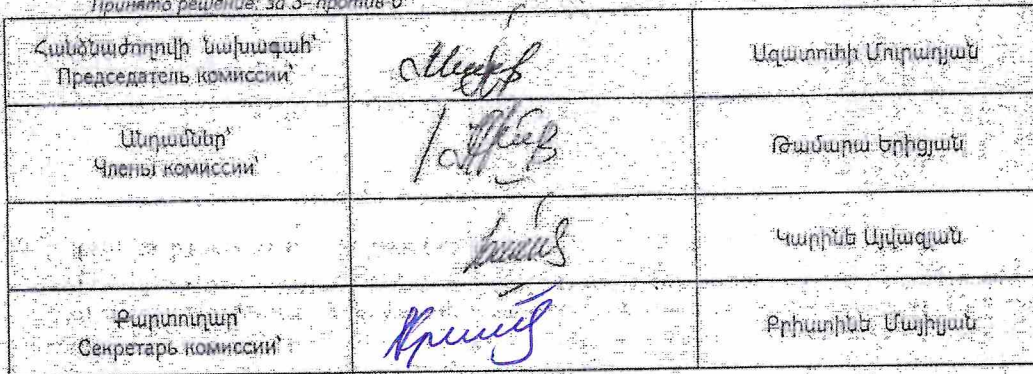 Принято решение: за 3– против-0
Հանձնաժողովի նախագահ՝
Председатель комиссии՝
Ազատուհի Մուրադյան
Անդամներ՝
Члены комиссии՝
Թամարա Երիցյան
Կարինե Այվազյան
Քարտուղար՝
Секретарь комиссии՝
Քրիստինե Մայիլյան